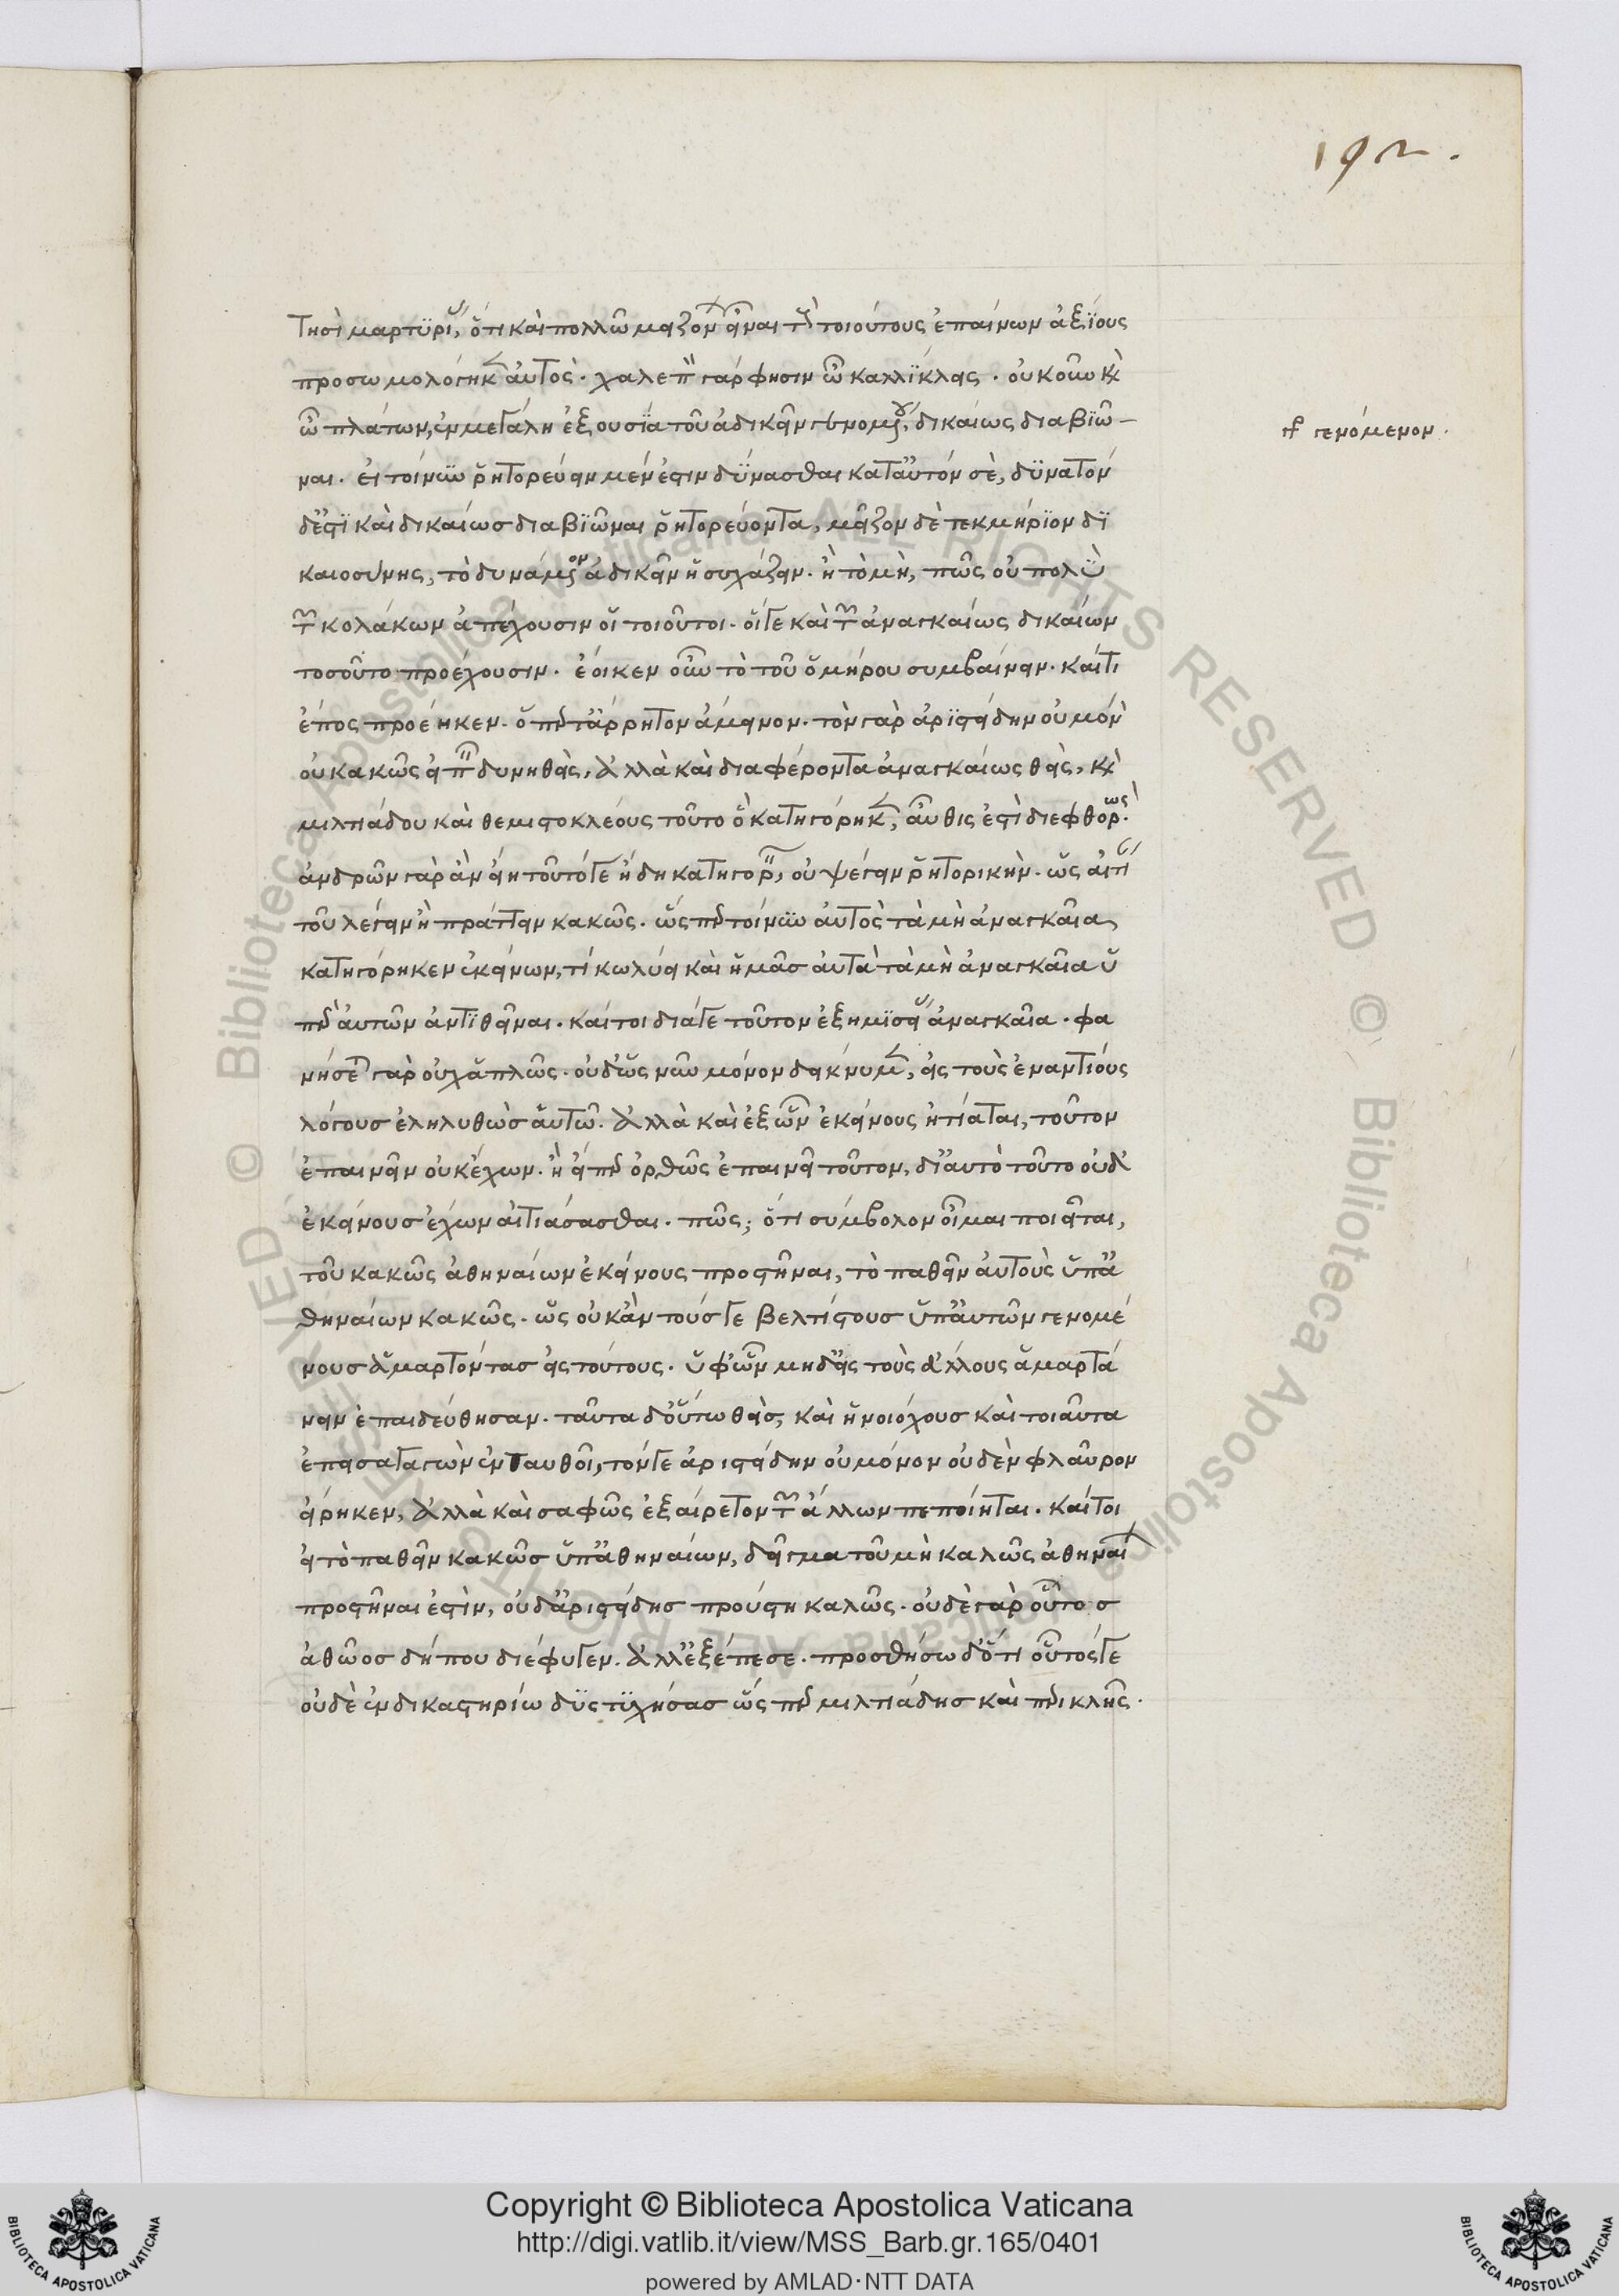 192.
τῆ σῇ μαρτυρίᾳ, ὅτι καὶ πολλῷ μείζονων εἶναι τοὺς τοιούτους ἐπαίνων ἀξίους
προσωμολόγηκας αὐτὸς. χαλεπὸν γάρ φησιν ὦ καλλίκλεις. οὐκοῦν καὶ
ὦ πλάτων, ἐν μεγάλῃ ἐξουσίᾳ τοῦ ἀδικεῖν γενομένου, δικαίως διαβιῶ-
ναι. εἰ τοίνυν ῥητορεύειν μέν ἐστιν δύνασθαι κατ' αὐτόν σὲ, δυνατὸν
δ' ἐστὶ καὶ δικαίως διαβιῶναι ῥητορεύοντα, μεῖζον δὲ τεκμήριον δι
καιοσύνης, τὸ δυνάμενον ἀδικεῖν ἡσυχάζειν. ἢ τὸ μὴ, πῶς οὐ πολὺ
τῶν κολάκων ἀπέχουσιν οἱ τοιοῦτοι. οἵ γε καὶ τῶν ἀναγκαίως δικαίων
τοσοῦτο προέχουσιν. ἔοικεν οὖν τὸ τοῦ ὁμήρου συμβαίνειν. καί τι
ἔπος προέηκεν. ὅπερ τ' ἄρρητον ἄμεινον. τὸν γὰρ ἀριστείδην οὐ μόνον
οὐ κακῶς εἰπεῖν δυνηθεὶς, ἀλλὰ καὶ διαφέροντα ἀναγκαίως θεὶς, καὶ
μιλτιάδου καὶ θεμιστοκλέους τοῦτο ὃ κατηγόρηκεν, αὖθις ἐστὶ διεφθορώς.
ἀνδρῶν γὰρ ἂν εἴη τοῦτό γε ἤδη κατηγορεῖν, οὐ ψέγειν ῥητορικὴν. ὡς αἰτίαν
τοῦ λέγειν ἢ πράττειν κακῶς. ὥσπερ τοίνυν αὐτὸς τὰ μὴ ἀναγκαῖα
κατηγόρηκεν ἐκείνων, τί κωλύει καὶ ἡμᾶς αὐτὰ τὰ μὴ ἀναγκαῖα ὑ
πὲρ αὐτῶν ἀντιθεῖναι. καίτοι διά γε τοῦτον ἐξ ἡμισείας ἀναγκαῖα. φα
νήσεται γὰρ οὐχ ἁπλῶς. οὐδ' ὡς νῦν μόνον δείκνυμεν, εἰς τοὺς ἐναντίους
λόγους ἐληλυθὼς αὑτῷ. ἀλλὰ καὶ ἐξ ὧν ἐκείνους ᾐτίαται, τοῦτον
ἐπαινεῖν οὐκ ἔχων. ἢ εἴπερ ὀρθῶς ἐπαινεῖ τοῦτον, δι' αὐτὸ τοῦτο οὐδ'
ἐκείνους ἔχων αἰτιάσασθαι. πῶς; ὅτι σύμβολον οἶμαι ποιεῖται,
τοῦ κακῶς ἀθηναίων ἐκείνους προστῆναι, τὸ παθεῖν αὐτοὺς ὑπ' ἀ
θηναίων κακῶς. ὡς οὐκ ἂν τούς γε βελτίστους ὑπ' αὐτῶν γενομέ
νους ἁμαρτόντας εἰς τούτους. ὑφ' ὧν μηδ' εἰς τοὺς ἄλλους ἁμαρτά
νειν ἐπαιδεύθησαν. ταῦτα δ' οὕτω θεὶς, καὶ ἡνιόχους καὶ τοιαῦτα
ἐπεισαγαγὼν ἐνταυθοῖ, τόν γε ἀριστείδην οὐ μόνον οὐδὲν φλαῦρον
εἴρηκεν, ἀλλὰ καὶ σαφῶς ἐξαίρετον τῶν ἄλλων πεποίηται. καίτοι
εἰ τὸ παθεῖν κακῶς ὑπ' ἀθηναίων, δεῖγμα τοῦ μὴ καλῶς ἀθηναίων
προστῆναι ἐστὶν, οὐδ' ἀριστείδης προὔστη καλῶς. οὐδὲ γὰρ οὗτος
ἀθῷος δήπου διέφυγεν. ἀλλ' ἐξέπεσε. προσθήσω δ' ὅτι οὗτός γε
οὐδὲ ἐν δικαστηρίῳ δυστυχήσας ὥσπερ μιλτιάδης καὶ περικλῆς.
γρ γενόμενον.
Copyright © Biblioteca Apostolica Vaticana
http://digi.vatlib.it/view/MSS_Barb.gr.165/0401
powered by AMLAD·NTT DATA